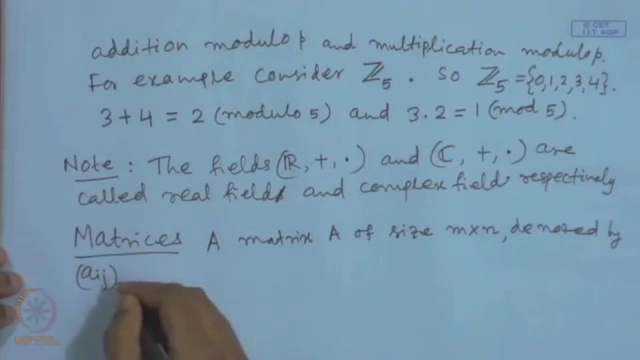 © CET
I.I.T. KGP
addition modulo p and multiplication modulo p.
For example consider ℤ₅. So ℤ₅ = {0,1,2,3,4}.
3+4 = 2 (modulo 5) and 3.2 = 1 (mod 5).
Note : The fields (ℝ, +, ·) and (ℂ, +, ·) are
called real field and complex field respectively
Matrices A matrix A of size m×n, denoted by
(aij)
NPTEL